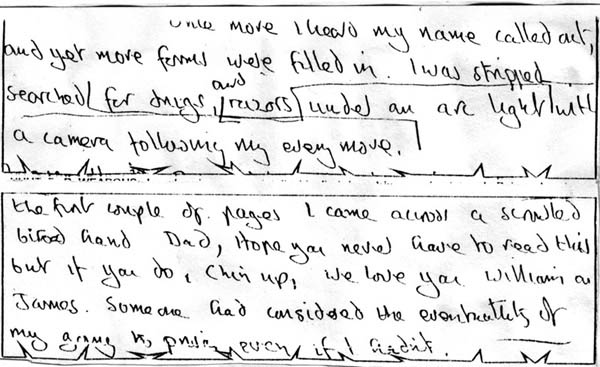 once more I heard my name called out,
and yet more forms were filled in. I was stripped
and
searched for drugs, razors under an arc light with
a camera following my every move.
the first couple of pages I came across a scrawled
biroed hand Dad, Hope you never have to read this
but if you do, Chin up, we love you William
James. Someone had considered the eventuality of
my going to prison even if I hadn't.